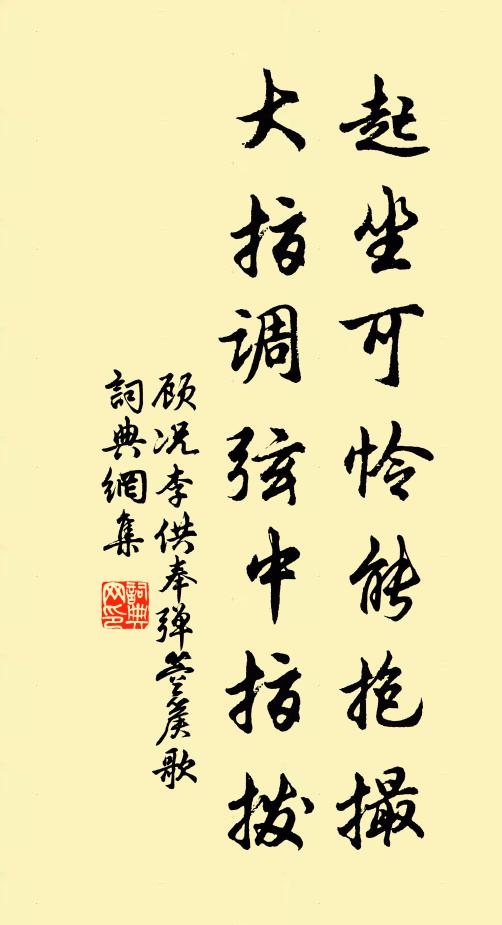 起坐可怜能抱撮
大指调弦中指拨
顾况李供奉弹箜篌歌
詞典網集
詞典网印